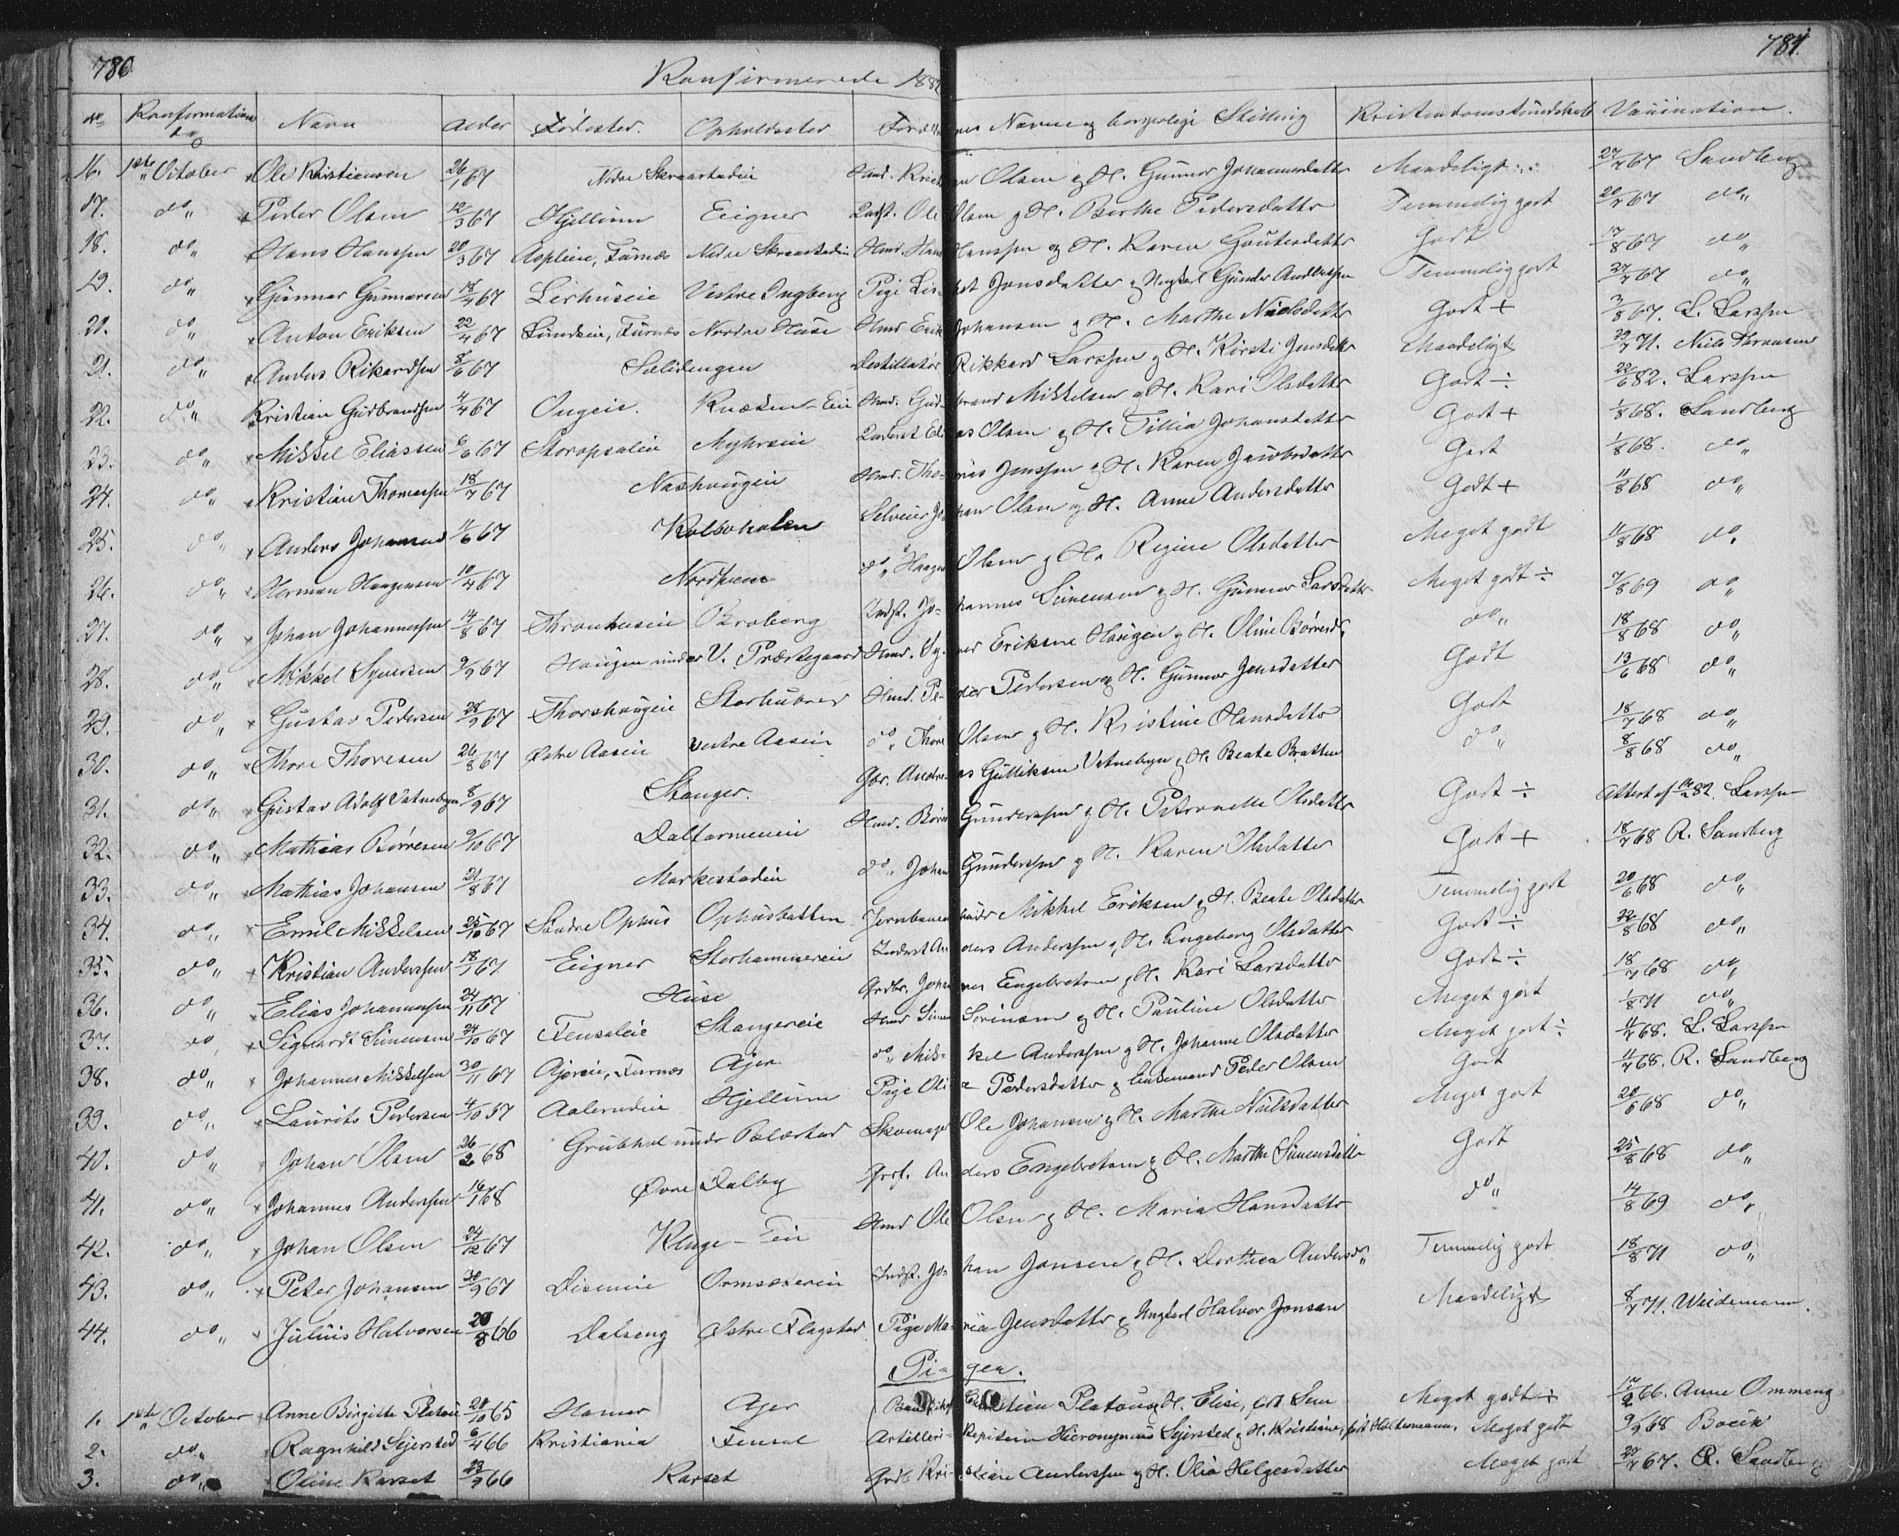 780
781.
Konfirmerede 1882
No Konfirmations do Navn Alder Fødested. Opholdssted Forældrenes Navne og borgerlige Stilling Kristendomskundskab Vaccination.
16. 1ste October Ole Kristiansen 26/1 67 Nedre Skraastadeie Hmd. Kristian Olsen og H. Gunnor Johannesdatter Maadeligt 27/7 67 Sandberg
17. do „ Peder Olsen 12/3 67 Hjellum Eigner Indst. Ole Olsen og H. Berthe Pedersdatter Temmelig godt 20/7 67 do „
18. do „ Hans Hanssen 20/3 67 Aspleie, Furnæs Nedre Skraastadeie Hmd. Hans Hanssen og H. Karen Goutesdatter Godt 17/8 67 do „
19. do „ Gunnar Gunnarsen 18/4 67 Lerhuseie Vestre Ingberg Pige Lisbet Jonsdatter og Ungkarl Gunder Andersen Temmelig godt 27/7 67 do „
20. do „ Anton Eriksen 22/4 67 Lundeie, Furnæs Nordre Huse Hmd Erik Johansen og H. Marthe Nielsdatter Godt + 3/8 67. L. Larssen
21. do „ Anders Rikardssen 8/6 67 Sælidengen Destillatør Rikkard Larssen og H. Kirsti Jensdatter Maadeligt 29/7 71. Niels Thronsen
22. do „ Kristian Gudbrandssen 4/4 67 Ongeie. Knæken-Eie Hmd. Gudbrand Mikkelsen og H. Kari Olsdatter Godt ÷ 22/6 82. Larssen
23. do „ Mikkel Eliassen 6/6 67 Storopsaleie Myhreeie Inderst Elias Olsen og H. Tillia Johansdatter Godt + 1/8 68. Sandberg
24. do „ Kristian Thomassen 18/7 67 Nashaugeie Hmd. Thomas Jenssen og H. Karen Jacobsdatter Godt 1/8 68. do „
25. do „ Anders Johansen 11/6 67 Kolboholen Selveier Johan Olsen og H. Anne Andersdatter Godt + 11/8 68 do „
26. do „ Herman Haagensen 10/4 67 Nordheim do „ Haagen Olsen og H. Regine Olsdatter Meget godt 11/8 68 do „
27. do „ Johan Johannessen 14/8 67 Thronhuseie Broberg Indst. Johannes Simensen og H. Gunnor Larsdatter Meget godt ÷ 7/8 69 do „
28. do „ Mikkel Syversen 9/9 67 Haugen under V. Præstegaard Hmd. Syver Eriksen Haugen og H. Oline Børresd. do „ 18/8 68 do „
29. do „ Gustav Pedersen 28/9 67 Thorshaugeie Storhubred Hmd. Peder Pedersen og H. Gunnor Jensdatter Godt 13/6 68 do „
30. do „ Thore Thoresen 26/8 67 Østre Aaseie Vestre Aaseie do „ Thore Olsen og H. Kristine Hansdatter Godt 18/7 68 do „
31. do „ Gustav Adolf Vatnebryn 8/9 67 Stanger. Gbr. Andreas Gulliksen Vatnebryn og H. Beate Bratten do „ 8/8 68 do „
32. do „ Mathias Børresen 9/10 67 Dalfarmeneie Hmd. Børre Gunderssen og H. Petronelle Olsdatter Godt ÷ Attest af 82. Larssen
33. do „ Mathias Johansen 21/8 67 Markestadeie do „ Johan Gunderssen og H. Karen Olsdatter Godt + 18/7 68 R. Sandberg
34. do „ Emil Mikkelsen 25/10 67 Søndre Ophus Ophusbatten Jernbane Mikkel Eriksen og H. Beate Olsdatter Temmelig godt 20/6 68 do „
35. do „ Kristian Anderssen 18/1 67 Eigner Storhammereie Inderst Anders Anderssen og H. Engeborg Olsdatter Godt ÷ 22/8 68 do „
36. do „ Elias Johannessen 24/11 67 Huse Grdbr. Johannes Engebretsen og H. Kari Larsdatter Godt ÷ 18/7 68 do „
37. do „ Sigvardt Simensen 24/10 67 Fensaleie Stangereie Hmd Simen Sørensen og H. Pauline Olsdatter Meget godt 1/8 71 do „
38. do „ Johannes Mikkelsen 30/11 67 Ajereie, Furnæs Ajer do „ Mikkel Anderssen og H. Johanne Olsdatter Meget godt ÷ 4/7 68. L. Larssen
39. do „ Laurits Pedersen 4/10 67 Aalerudeie Hjellum Pige Olia Pedersdatter og Enkemand Peder Olsen Godt 4/7 68. R. Sandberg
40. do „ Johan Olsen 26/2 68 Grubhol under Bolestad Skomager Ole Johansen og H. Marthe Nielsdatter Meget godt 20/6 68 do „
41. do „ Johannes Anderssen 16/1 68 Øvre Dalby Grdf. Anders Engebretsen og H. Marthe Simensdatter Godt 25/8 68 do „
42. do „ Johan Olsen 24/12 67 Kluge-Eie Hmd Ole Olsen og H. Maria Hansdatter do „ 14/8 69 do „
43. do „ Peter Johansen 30/9 67 Diseneie Ormsætereie Indst. Johan Jonsen og H. Dorthea Andersd. Temmelig godt 18/8 71 do „
44. do „ Julius Halvorsen 20/8 66 Dalseng Østre Flagstad Pige Maria Jensdatter og Ungkarl Halvor Jonsen Maadeligt 8/7 71. Weidemann.
Pigen.
1. 1ste October Anne Birgitte Platou 20/10 65 Hamar Ajer Christian Platou og H. Elise, født Sem Meget godt ÷ 17/2 66. Anne Ommang
2. do „ Ragnhild Sejersted 6/4 66 Kristiania Fensal Artilleri-Kapitein Hieronymus Sejersted og H. Kristiane, født Holtermann. Meget godt 9/9 68 Boeck
3. do „ Oline Karset 23/9 66 Karset Grdb. Kristian Anderssen og H. Olia Helgesdatter Meget godt 27/7 67. R. Sandberg